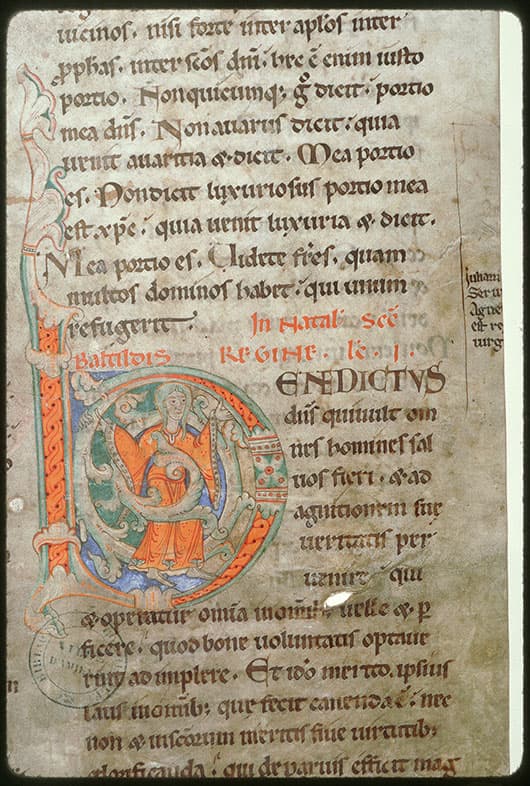 uicinos. nisi forte inter aplos inter
pphas. inter scos dni. hec ē enim iusto
portio. Non quicunq; g̊ dicit. portio
mea dns. Non auarus dicit. quia
uenit auaritia & dicit. Mea portio
es. Non dicit luxuriosus portio mea
est xpe. quia uenit luxuria & dicit.
Mea portio es. Uidete fres. quam
multos dominos habet. qui unum
refugerit.
In Natal. Scē
Baltildis REGINE. lc. I.
BENEDICTVS
dns qui uult om
nes homines sal
uos fieri. & ad
agnitionem sue
ueritatis per
uenire qui
& operatur omia in omib; uelle & p
ficere. quod bone uoluntatis optaue
rint ad implere. Et ido merito ipsius
laus in cunctib; que fecit canenda ē. nec
non & in scorum meritis siue uirtutib;
glorificanda. qui de paruis efficit mag